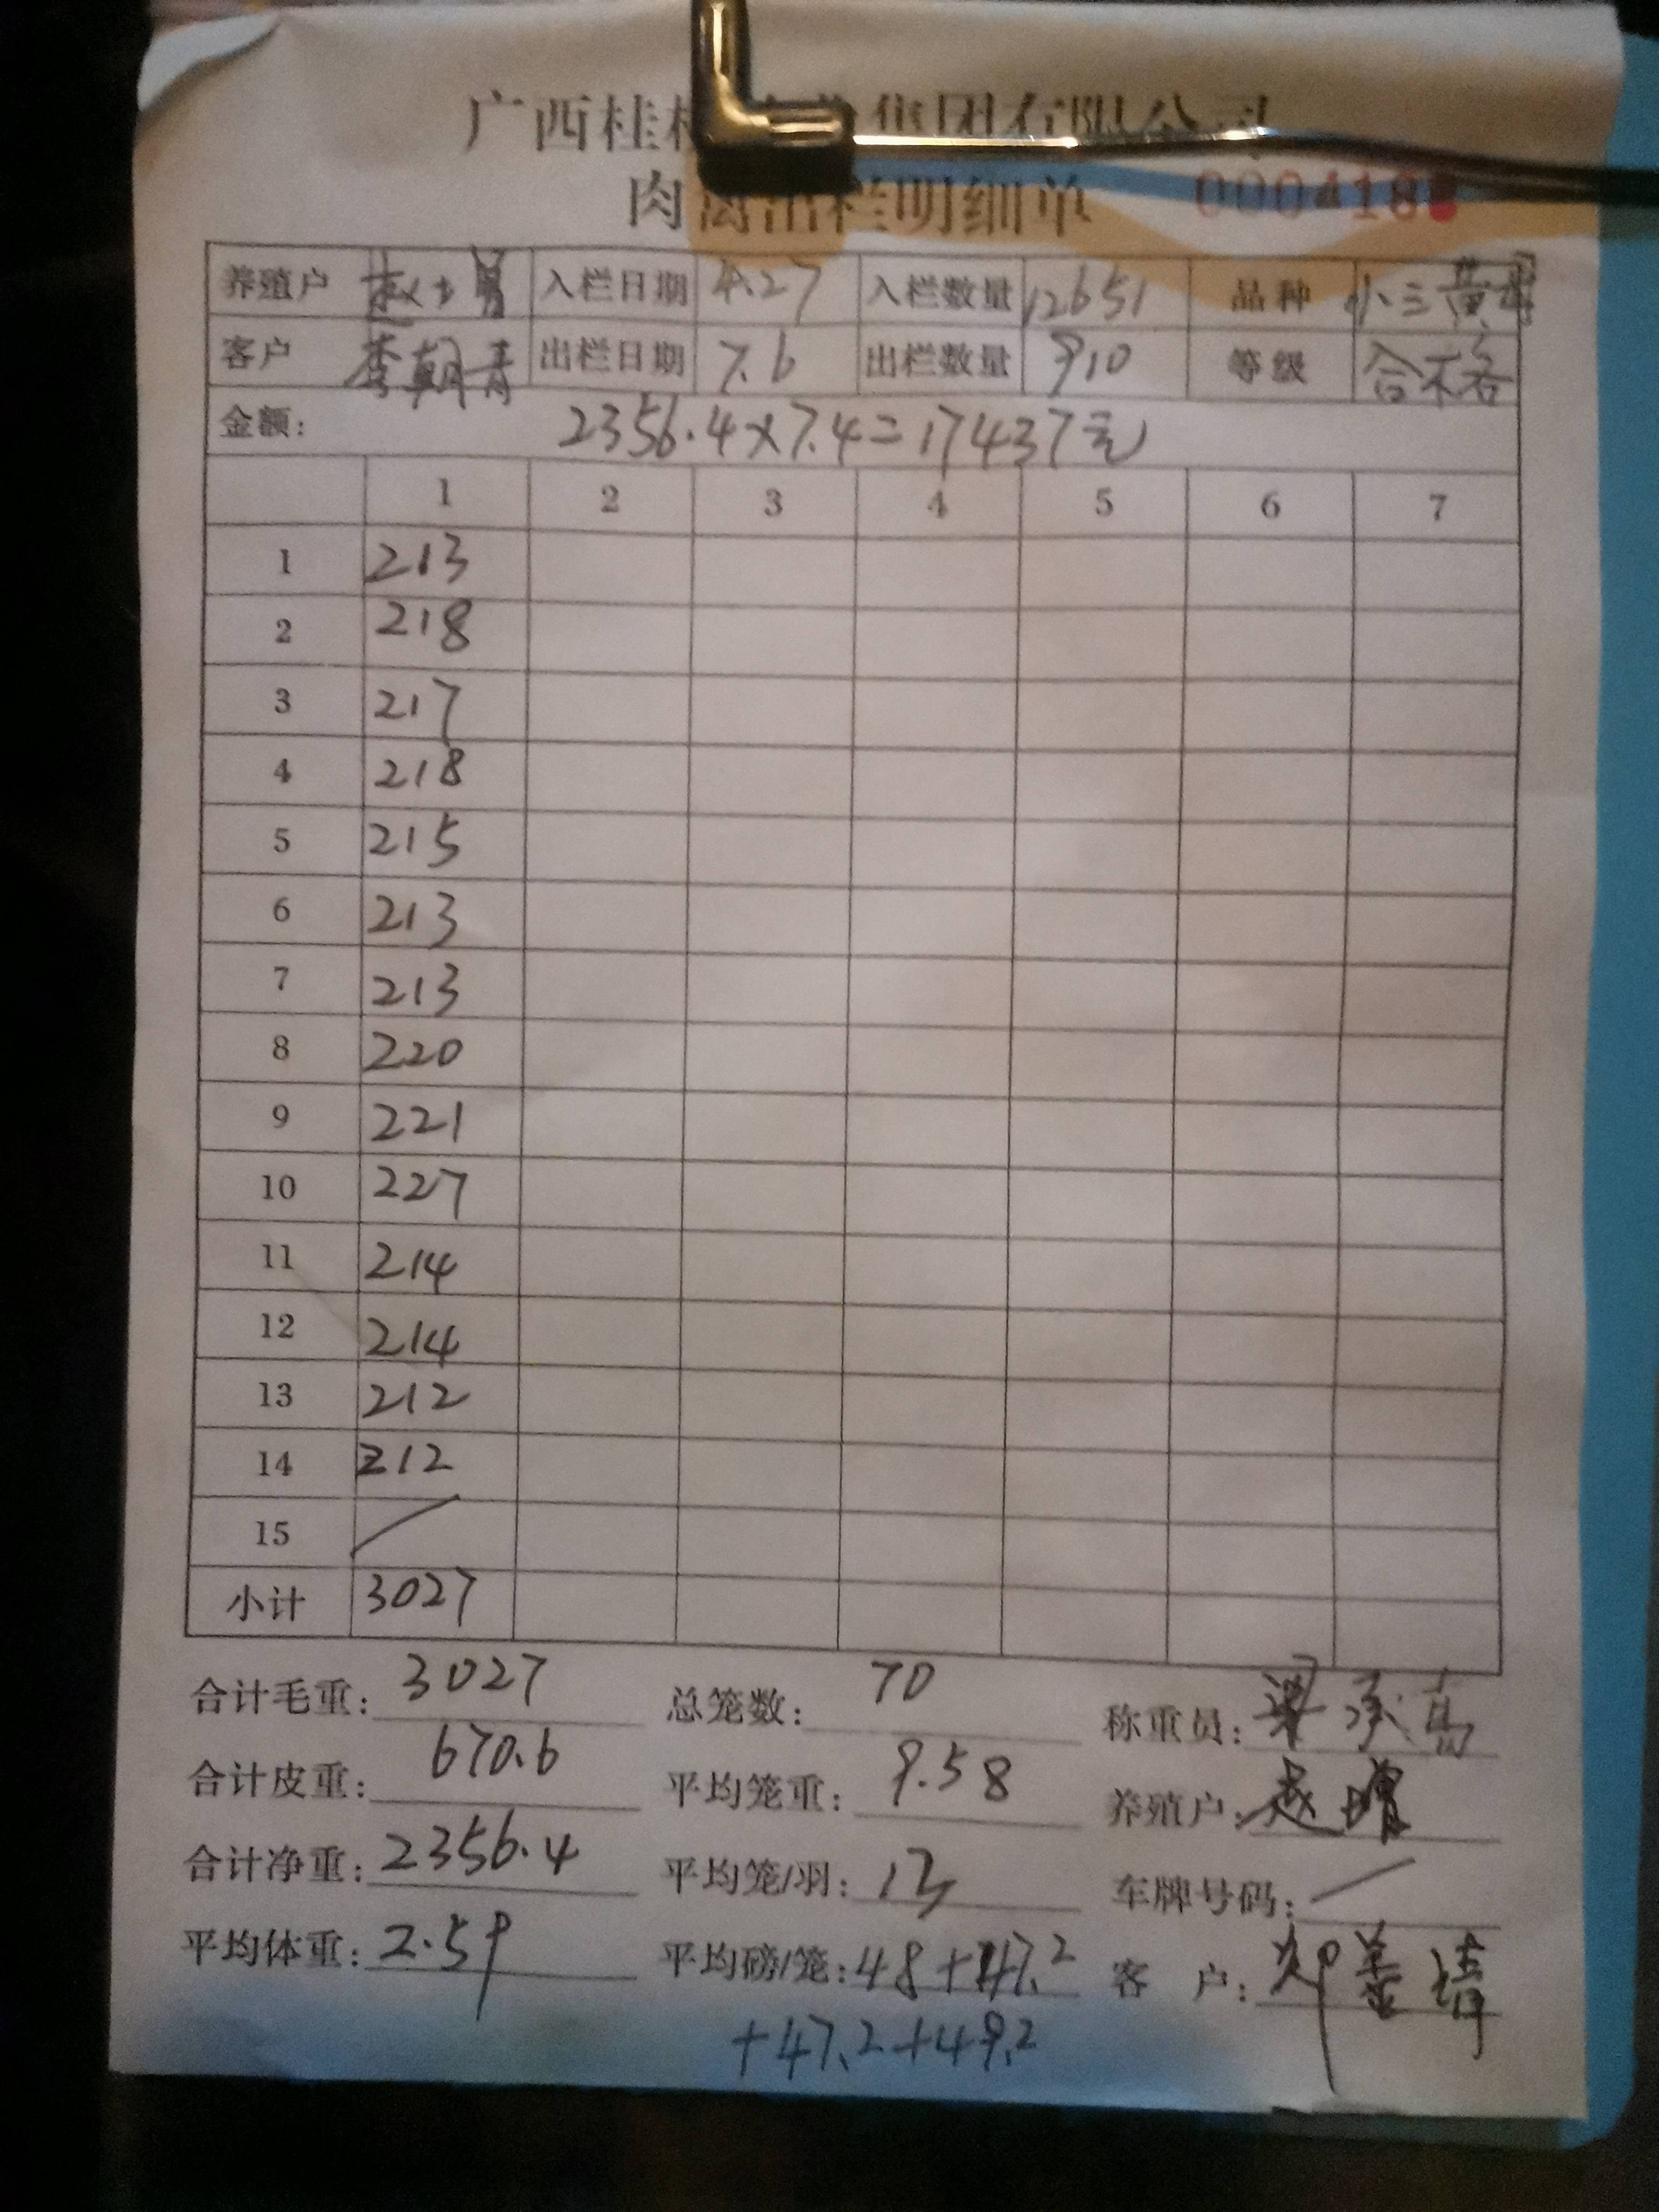 广西桂 集团有限公司
肉禽出栏明细单 000418
养殖户 赵 入栏日期 4.27 入栏数量 12651 品种 小三黄
客户 李朝青 出栏日期 7.6 出栏数量 910 等级 合格
金额: 2356.4×7.4=17437元
1 2 3 4 5 6 7
1 213
2 218
3 217
4 218
5 215
6 213
7 213
8 220
9 221
10 227
11 214
12 214
13 212
14 212
15 /
小计 3027
合计毛重: 3027 总笼数: 70 称重员: 梁承
合计皮重: 670.6 平均笼重: 9.58 养殖户:
合计净重: 2356.4 平均笼/羽: 13 车牌号码: /
平均体重: 2.59 平均磅/笼: 48+47.2 客 户:
+47.2+49.2